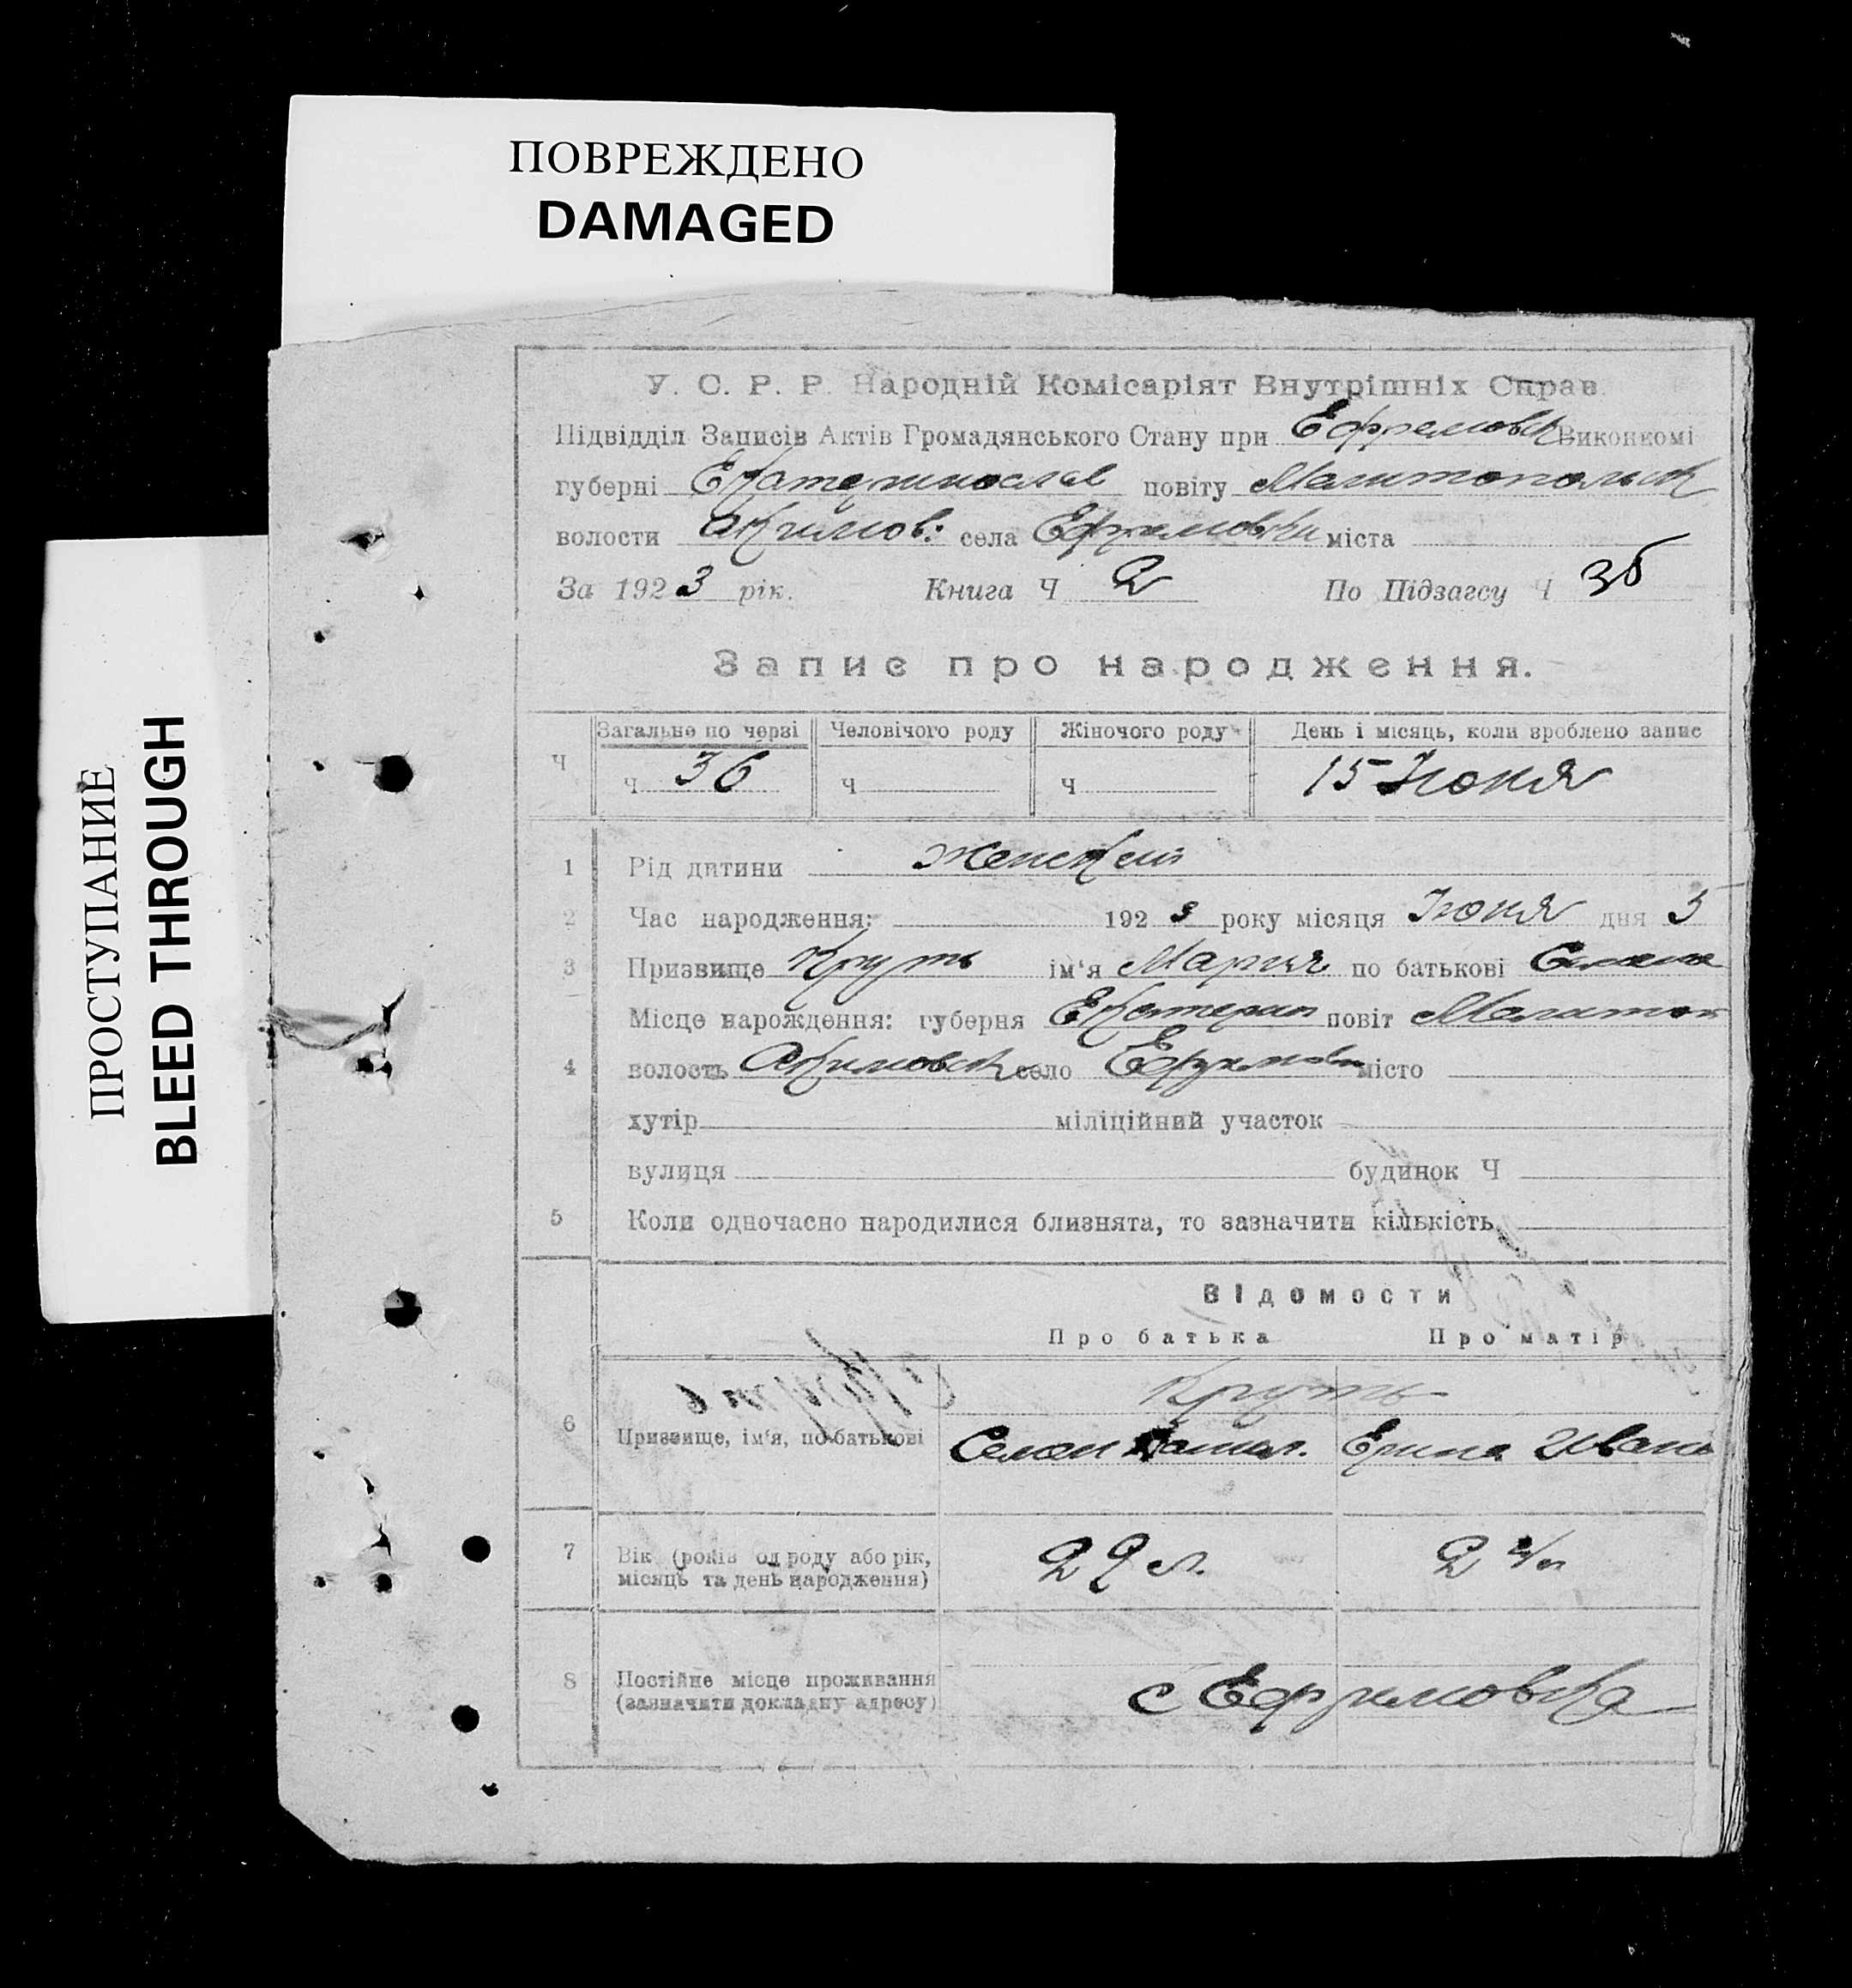 ПОВРЕЖДЕНО
DAMAGED
ПРОСТУПАНИЕ
BLEED THROUGH
У. С. Р. Р. Народній Комісаріят Внутрішніх Справ.
Підвідділ Записів Актів Громадянського Стану при Ефремовск Виконкомі
губерні Екатеринослав повіту Мелитопольск
волости Акимов: села Ефремовки міста
За 1923 рік. Книга Ч 2 По Підзагсу Ч 36
Запис про народження.
Загальне по черзі Человічого роду Жіночого роду День і місяць, коли зроблено запис
Ч Ч 36 Ч Ч 15 Июня
1 Рід дитини женский
2 Час народження: 1923 року місяця Июня дня 5
3 Призвище Круть ім'я Мария по батькові
Місце нарождення: губерня Екатерин повіт Мелитоп
4 волость Акимовск село місто
хутір міліційний участок
вулиця будинок Ч
5 Коли одночасно народилися близнята, то зазначити кількість
Відомости
Про батька Про матір
Круть
6 Призвище, ім'я, по батькові Семен Ерина Иван
7 Вік (років од роду або рік, 22 л.
місяць та день народження)
8 Постійне місце проживання с Ефримовка
(зазначити докладну адресу)